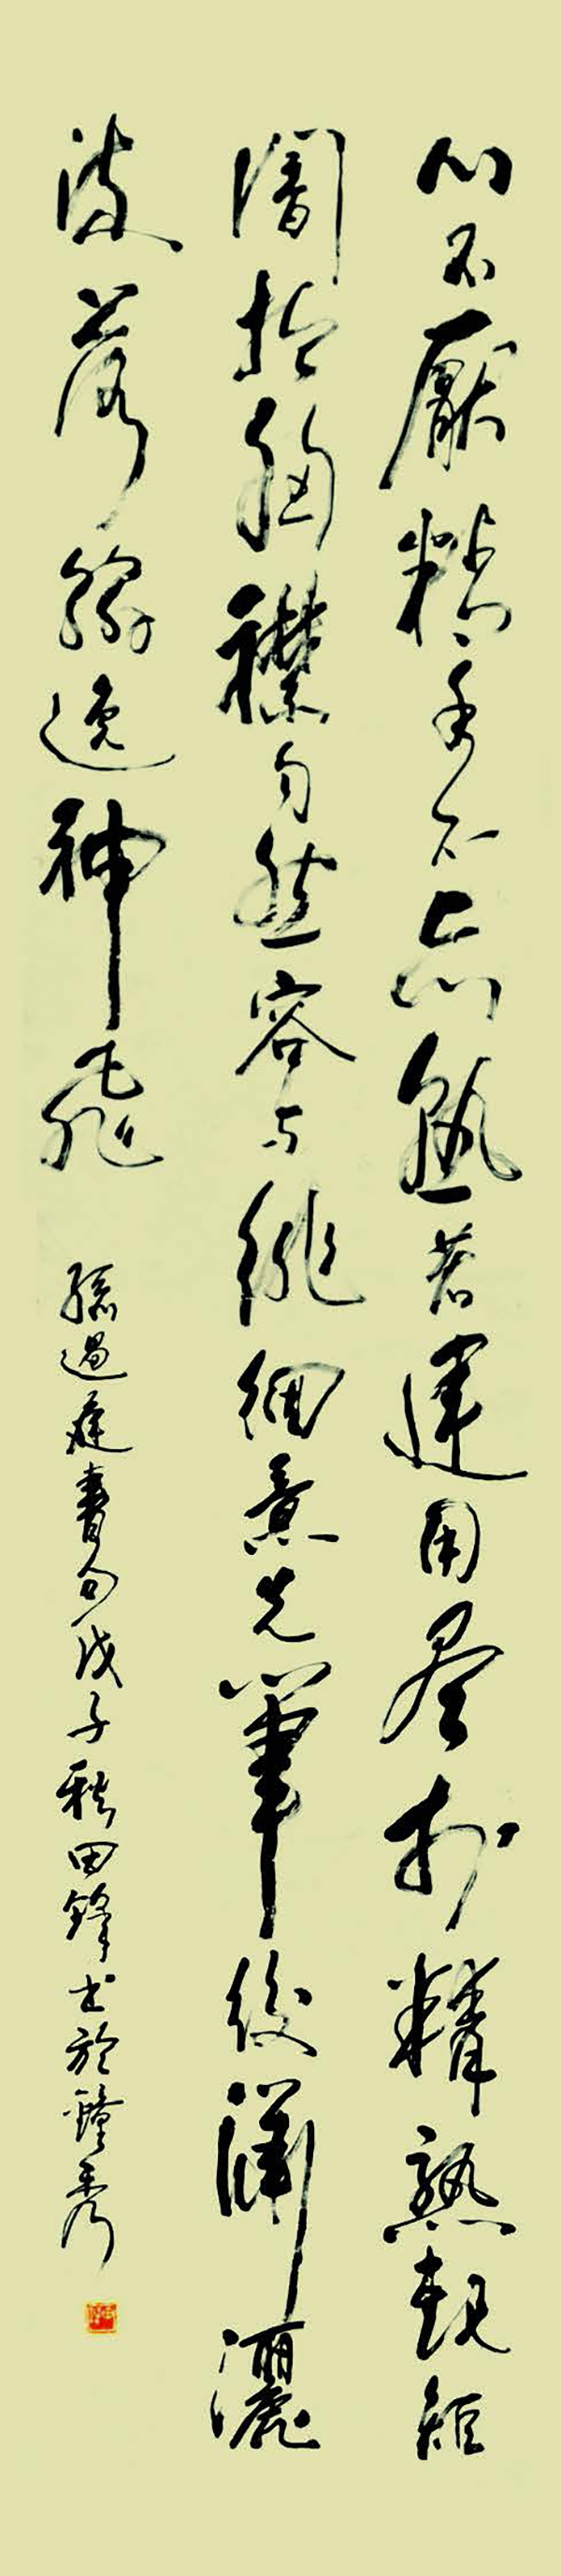 心不厭精手不忘熟若運用盡於精熟規矩
闇於胸襟自然容與徘徊意先筆後瀟灑
流落翰逸神飛
孫過庭書句戊子秋田鋒書於鐘秀